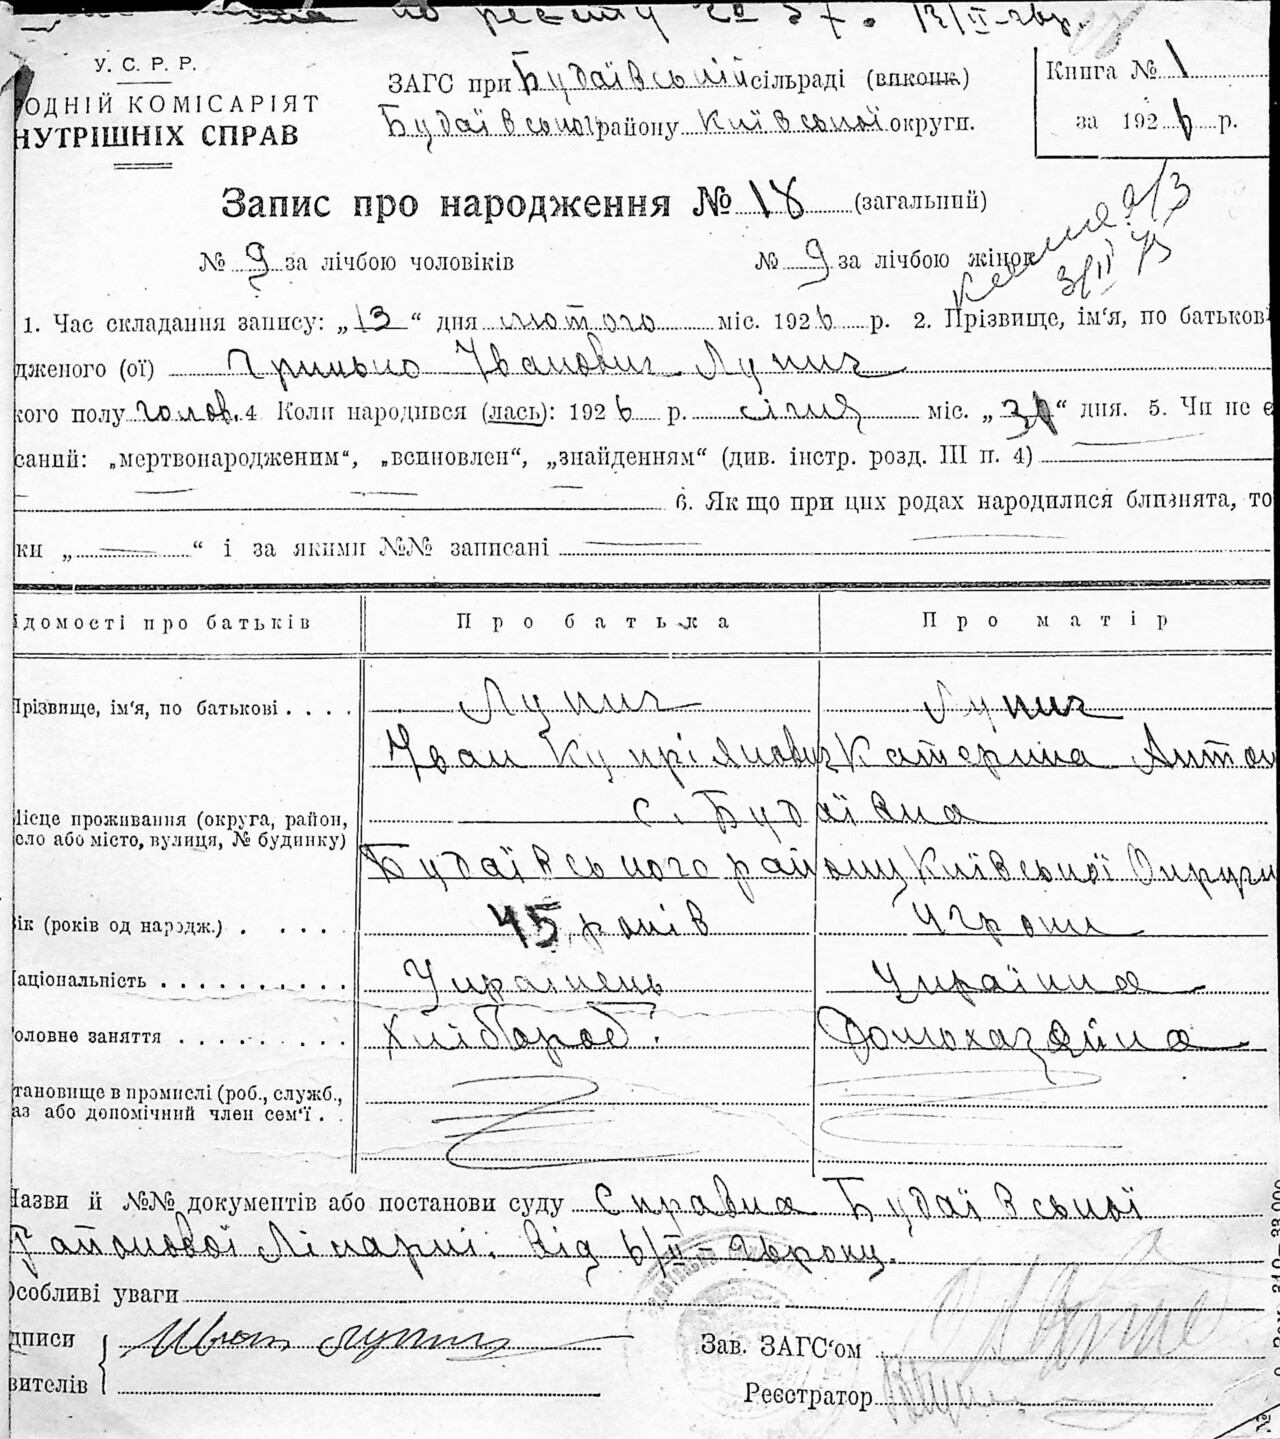 по реєстру
У. С. Р. Р.
ОДНІЙ КОМІСАРІЯТ
НУТРІШНІХ СПРАВ
ЗАГС при Будаївській сільраді (виконк.)
Будаївського району Київської округи.
Книга № 1
за 1926 р.
Запис про народження № 18 (загальний)
№ 9 за лічбою чоловіків № 9 за лічбою жінок
1. Час складання запису: „13“ дня лютого міс. 1926 р. 2. Прізвище, ім'я, по батькові
дженого (ої) Гринько Іванович Лупич
кого полу голов. 4 Коли народився (лась): 1926 р. січня міс. „31“ дня. 5. Чи не є
саний: „мертвонародженим“, „всиновлен“, „знайденням“ (див. інстр. розд. III п. 4)
6. Як що при цих родах народилися близнята, то
ки „ “ і за якими №№ записані
ідомості про батьків Про батька Про матір
Прізвище, ім'я, по батькові . . . . Лупич Лупич
Іван Купріянович Катерина Антон
Місце проживання (округа, район,
ело або місто, вулиця, № будинку)
с. Будаївка
Будаївського району Київської Округи
ік (років од народж.) . . . . . 45 років
аціональність . . . . . . . . . . Українець Українка
оловне заняття . . . . . . . . . Хлібороб. Домохазяйка
тановище в промислі (роб., служб.,
аз або допомічний член сем'ї . .
Назви й №№ документів або постанови суду Справка Будаївської
Районової Лікарні. Від 6/II-26 року.
Особливі уваги
дписи Иван Лупич
вителів
Зав. ЗАГС'ом
Реєстратор